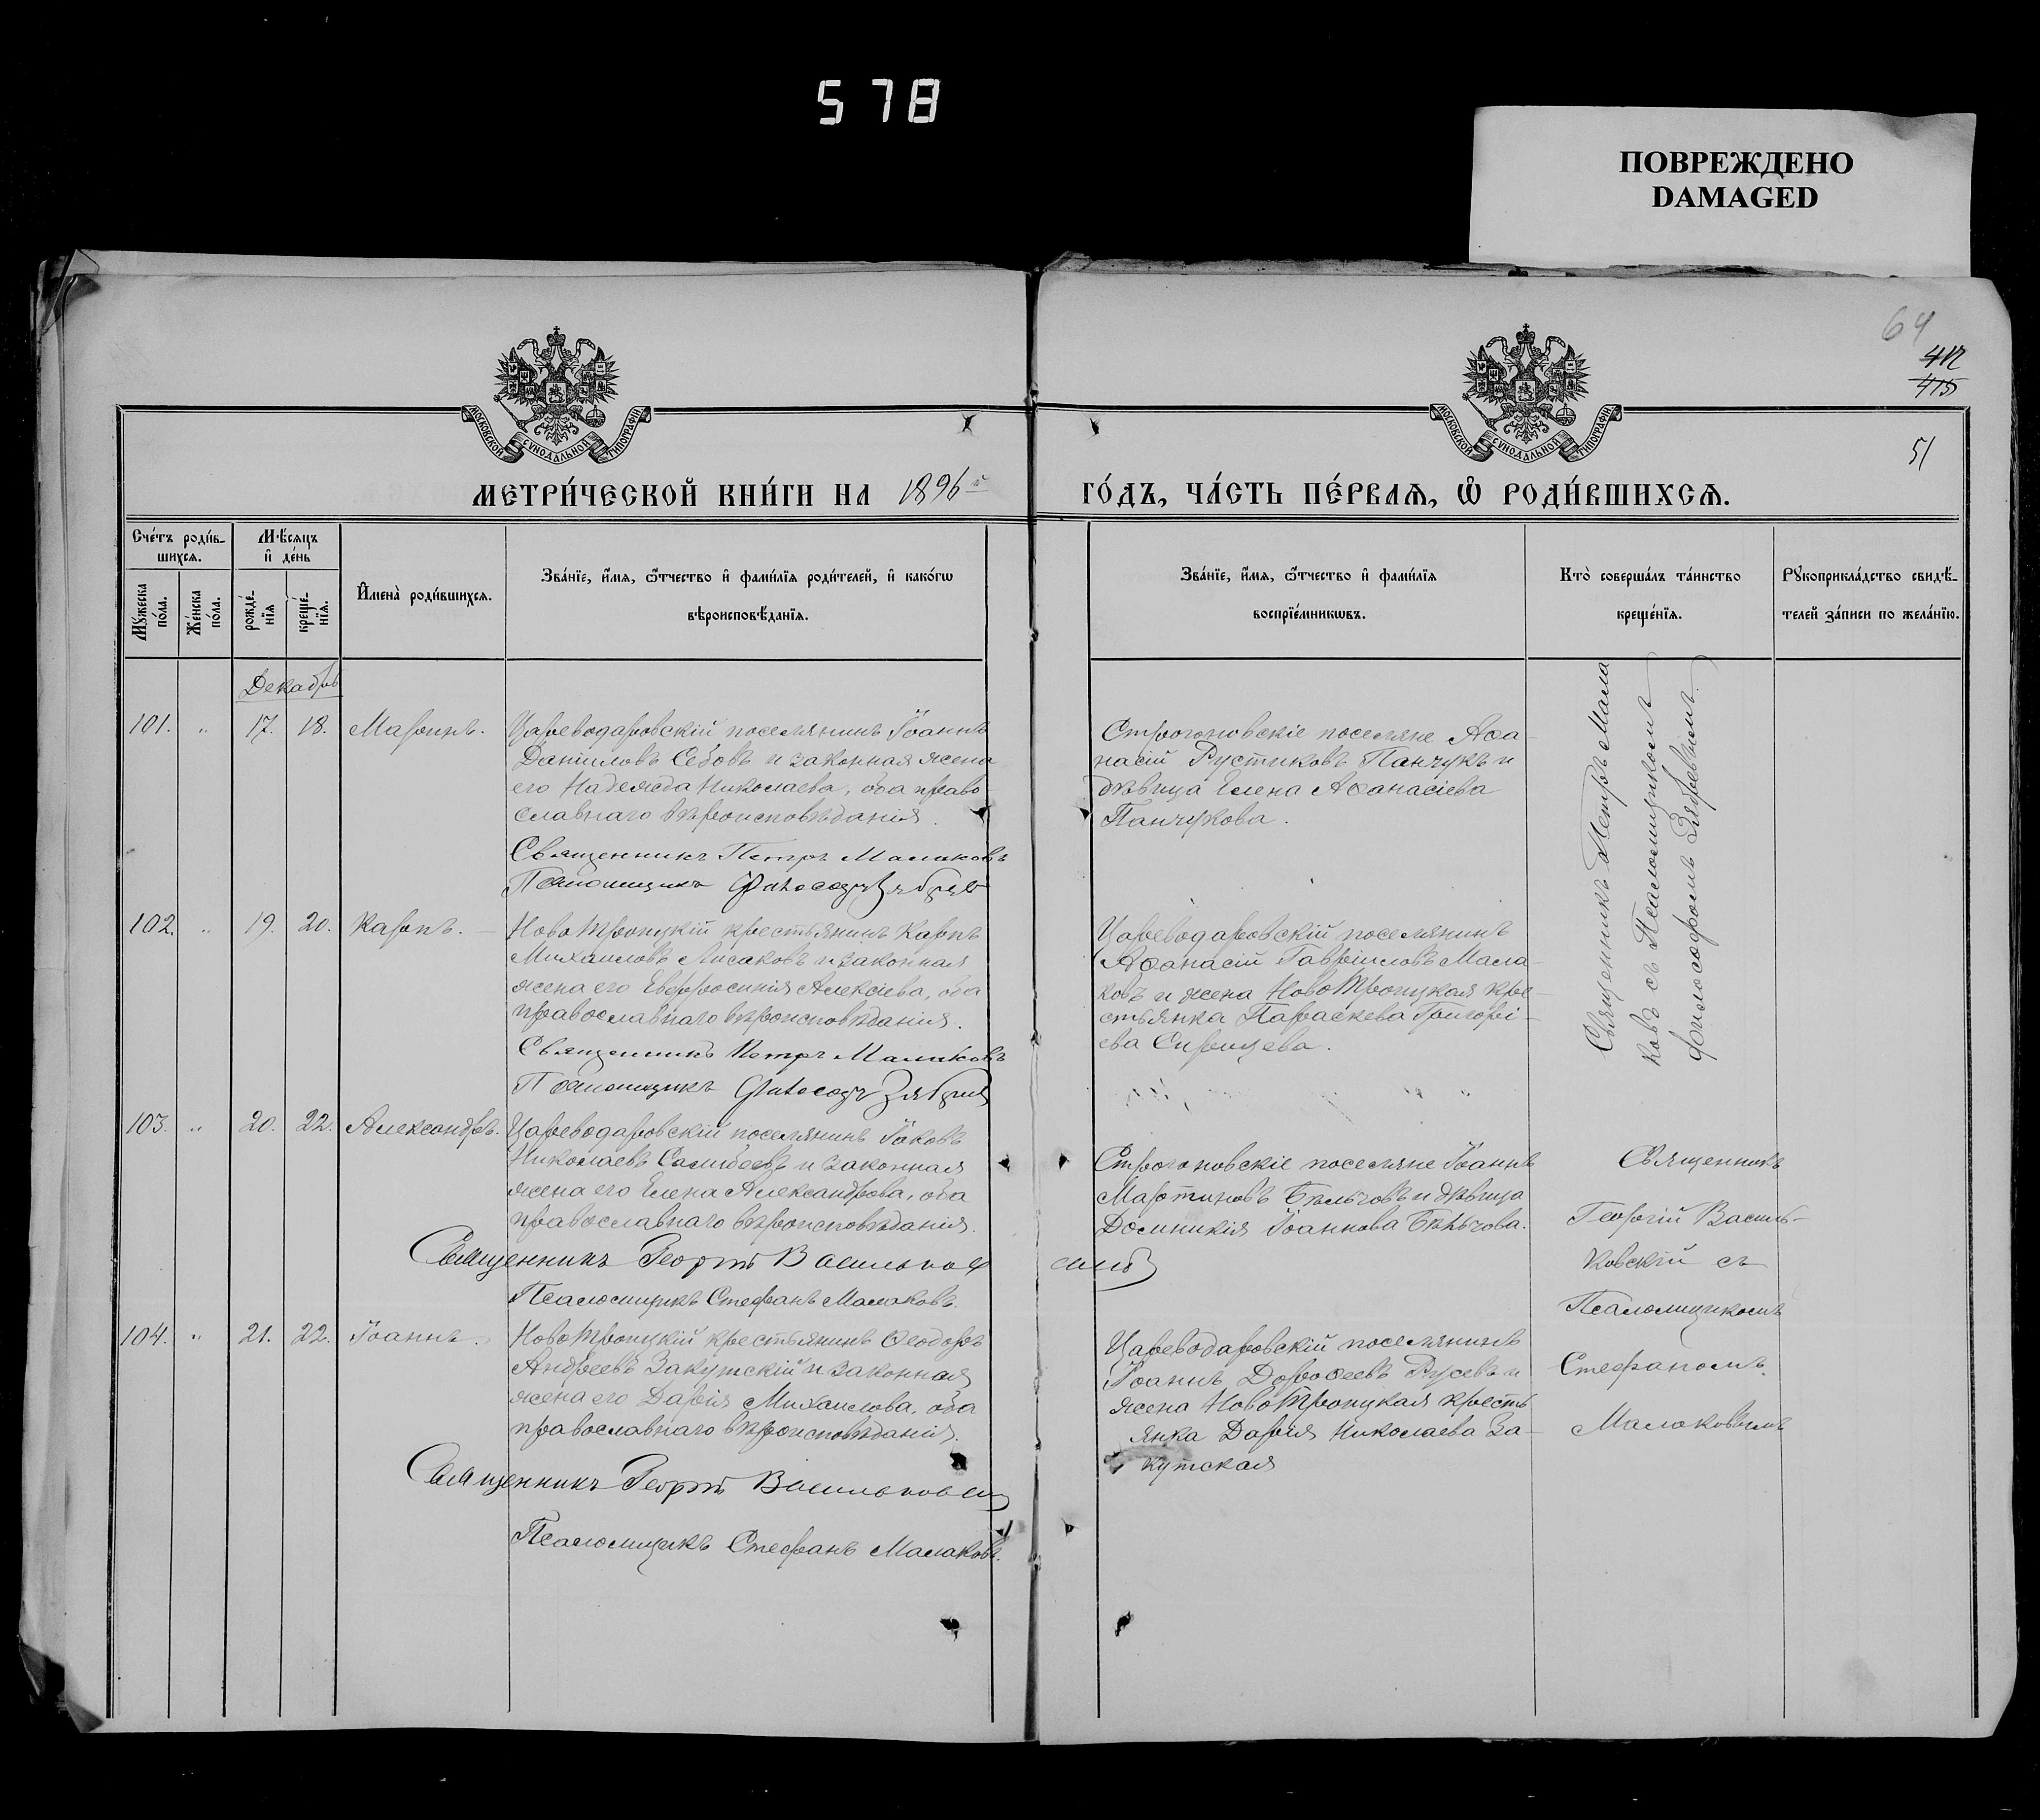 578
ПОВРЕЖДЕНО
DAMAGED
64
412
415
51
МОСКОВСКОЙ СѴНОДАЛЬНОЙ ТИПОГРАФІИ
МОСКОВСКОЙ СѴНОДАЛЬНОЙ ТИПОГРАФІИ
МЕТРИ́ЧЕСКОЙ КНИ́ГИ НА 1896й ГО́ДЪ, ЧА́СТЬ ПЕ́РВАЯ, Ѡ҆ РОДИ́ВШИХСЯ.
Сче́тъ роди́в-
шихся.
Мѣ́сяцъ
и҆ де́нь
Мꙋ́жеска
по́ла.
Же́нска
по́ла.
рожде́-
нїя
креще́-
нїя.
И҆мена̀ роди́вшихся.
Зва́нїе, и҆́мя, ѻ҆́тчество и҆ фами́лїя роди́телей, и҆ како́гѡ
вѣроисповѣ́данїя.
Зва́нїе, и҆́мя, ѻ҆́тчество и҆ фами́лїя
воспрїе́мникѡвъ.
Кто̀ соверша́лъ та́инство
креще́нїя.
Рꙋкоприкла́дство свидѣ́-
телей за́писи по жела́нїю.
Декабрь
101. „ 17. 18. Маринъ.
Цареводаровскій поселянинъ Іоаннъ
Даніиловъ Себовъ и законная жена
его Надежда Николаева, оба право-
славнаго вѣроисповѣданія.
Священникъ Петръ Малаковъ
Псаломщикъ Философъ Зябревъ
Строгоновскіе поселяне Аѳа-
насій Рустиковъ Панчукъ и
дѣвица Елена Аѳанасіева
Панчукова.
Священникъ Петръ Мала
ковъ съ Псаломщикомъ
Философомъ Зябревымъ.
102. „ 19. 20. Карпъ.
НовоТроицкій крестьянинъ Карпъ
Михаиловъ Лисаковъ и законная
жена его Евфросинія Алексіева, оба
православнаго вѣроисповѣданія.
Священникъ Петръ Малаковъ
Псаломщикъ Философъ Зябревъ
Цареводаровскій поселянинъ
Аѳанасій Гавріиловъ Мала-
ковъ и жена НовоТроицкая кре-
стьянка Параскева Григорі-
ева
103. „ 20. 22. Александръ.
Цареводаровскій поселянинъ Іаковъ
Николаевъ и законная
жена его Елена Александрова, оба
православнаго вѣроисповѣданія.
Священникъ Георгій Васильковскій
Псаломщикъ Стефанъ Малаковъ.
Строгоновскіе поселяне Іоаннъ
Мартиновъ Бѣльчовъ и дѣвица
Домникія Іоаннова Бѣльчова.
Священникъ
Георгій Василь-
ковскій съ
Псаломщикомъ
Стефаномъ
Малаковымъ
104. „ 21. 22. Іоаннъ.
НовоТроицкій крестьянинъ Ѳеодоръ
Андреевъ Закутскій и законная
жена его Дарія Михаилова, оба
православнаго вѣроисповѣданія.
Священникъ Георгій Васильковскій
Псаломщикъ Стефанъ Малаковъ.
Цареводаровскій поселянинъ
Іоаннъ Дороѳеевъ Русевъ и
жена НовоТроицкая кресть
янка Дарія Николаева За-
кутская